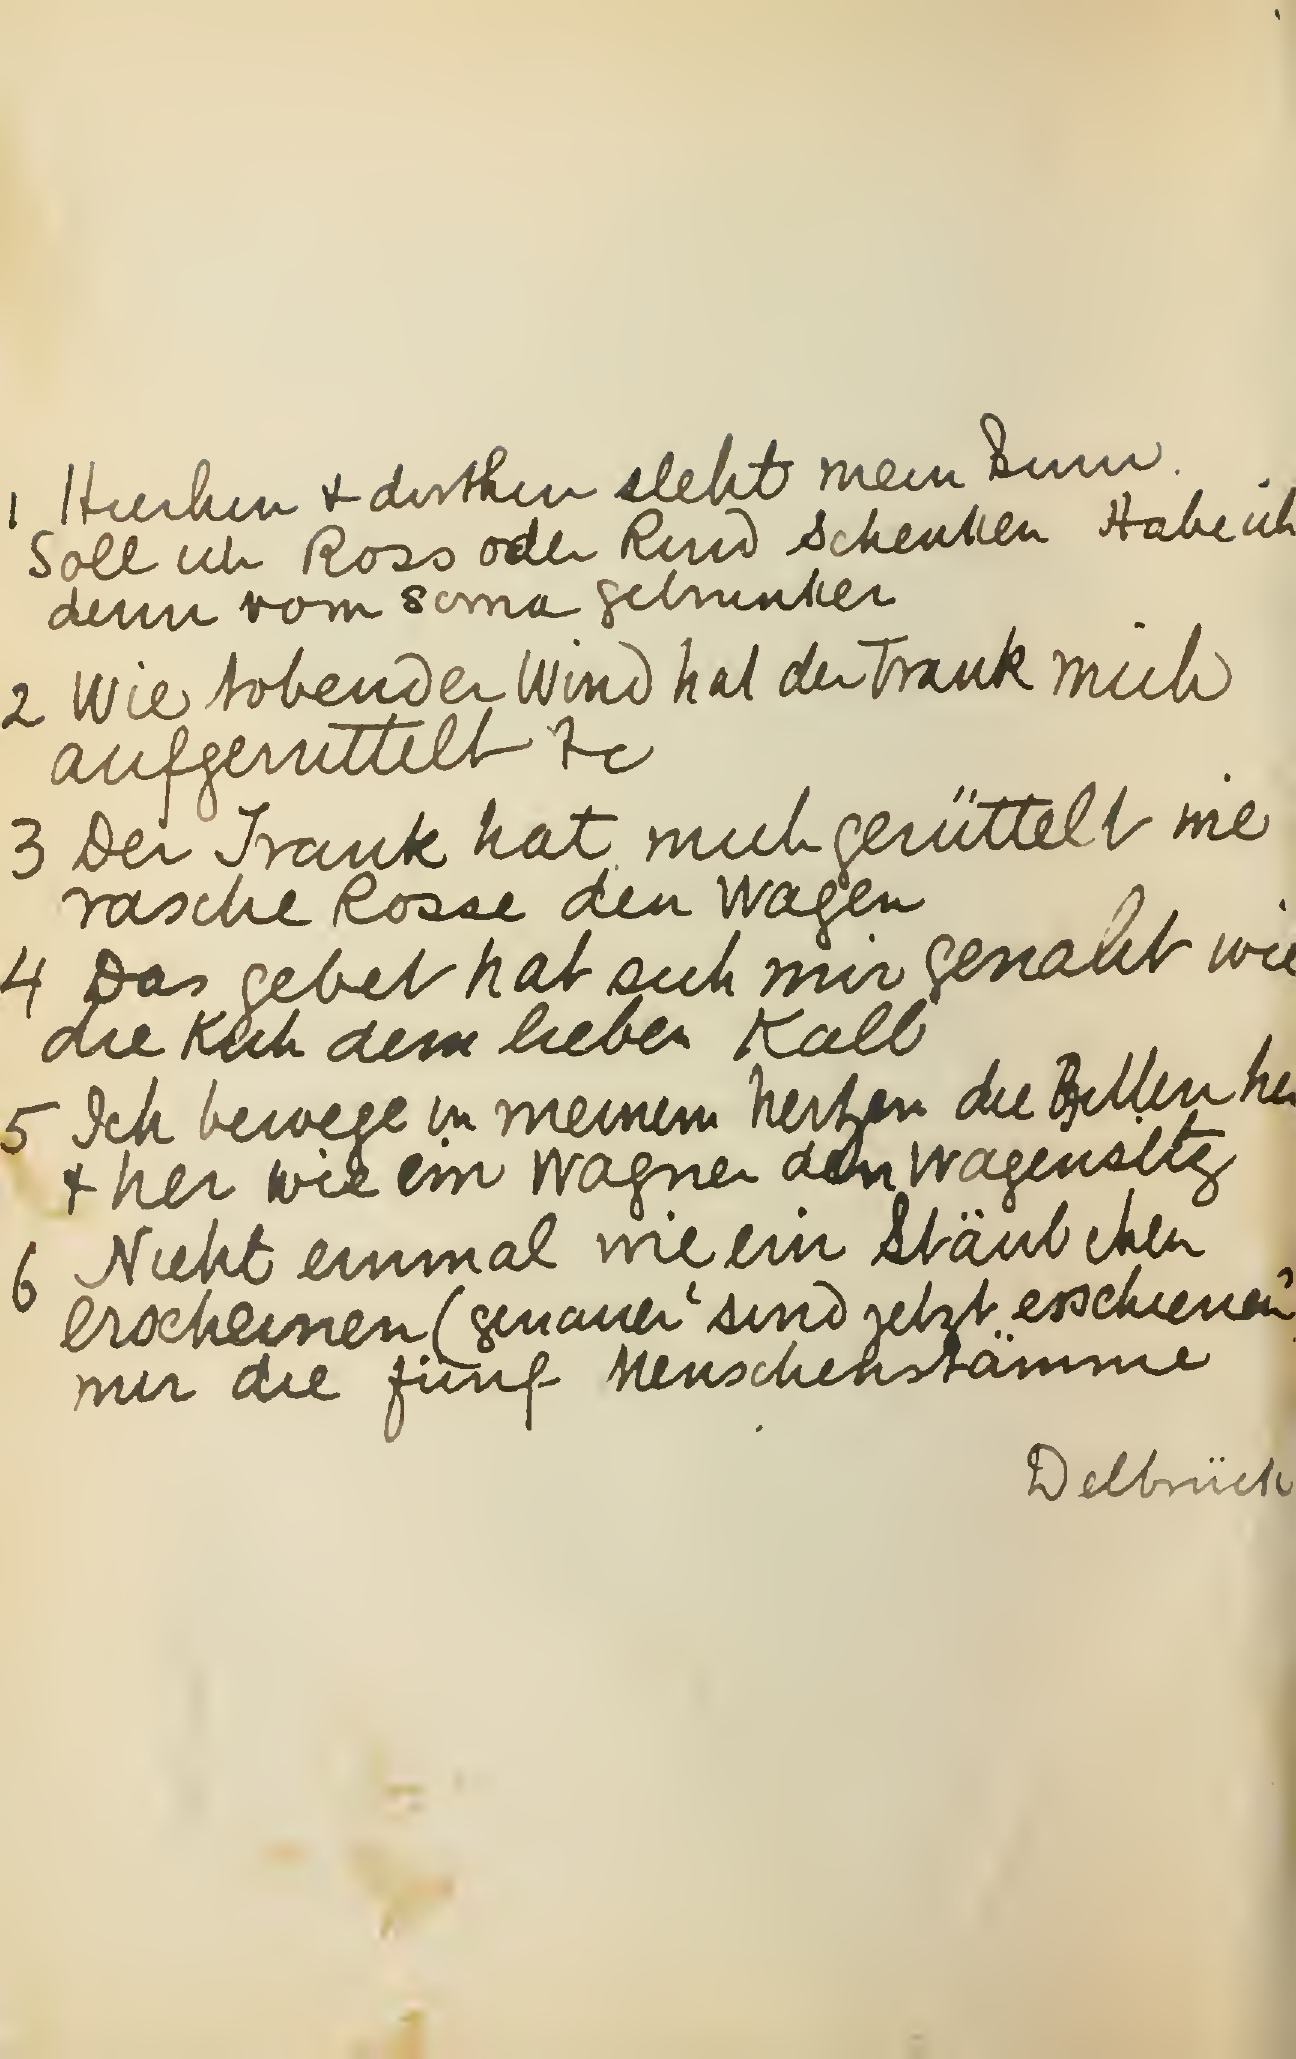 1 Hierhin & dorthin steht mein Sinn.
Soll ich Ross oder Rind schenken Habe ich
denn vom soma getrunken
2 Wie tobender Wind hat der Trank mich
aufgeruttelt &c
3 Der Trank hat mich gerüttelt wie
rasche Rosse den Wagen
4 Das gebet hat sich mir genaht wie
die Kuh dem lieben Kalb
5 Ich bewege in meinem hertzen die Bitten hin
& her wie ein Wagner den Wagensitz
6 Nicht einmal wie ein Stäubchen
erscheinen (genauer 'sind jetzt erschienen'
mir die fünf Menschenstämme
Delbrück